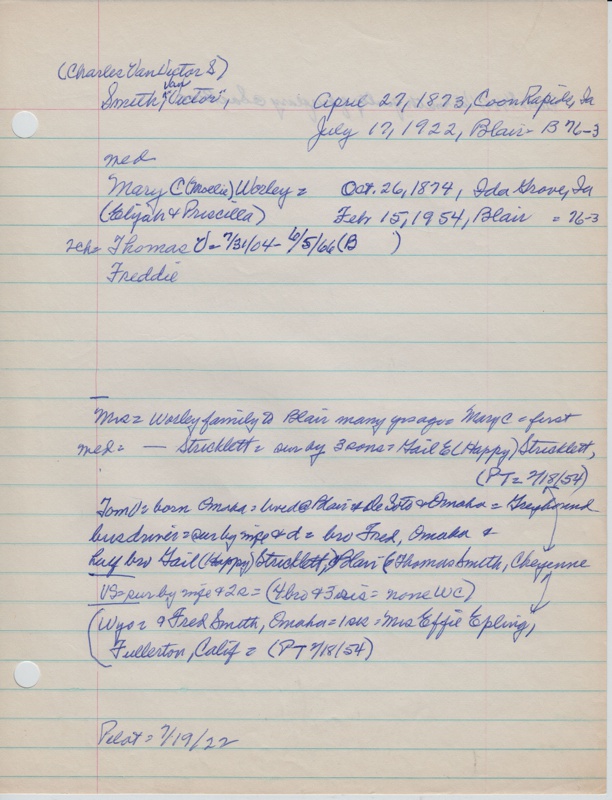 (Charles Van Victor S)
Smith, "Van Victor", April 27, 1873, Coon Rapids, Ia
July 17, 1922, Blair - B 76-3
med
Mary C (Mollie) Worley = Oct. 26, 1874, Ida Grove, Ia
(Elijah & Priscilla) Feb 15, 1954, Blair = 76-3
2ch = Thomas V = 7/31/04 - 6/5/66 (B )
Freddie
Mrs = Worley family to Blair many yrs ago = Mary C = first
med = — Stricklett = sur by 3 sons = Gail E (Happy) Stricklett,
(PT = 2/18/54)
Tom V = born Omaha = lived @ Blair & De Soto & Omaha = Greyhound
bus driver = sur by wife & d = bro Fred, Omaha &
half bro Gail (Happy) Stricklett, Blair & Thomas Smith, Cheyenne
VS = sur by wife & 2s = (4 bro & 3 sis = none WC)
(Wyo = & Fred Smith, Omaha = 1 sis = Mrs Effie Epling,
Fullerton, Calif = (PT 2/18/54)
Pilot = 7/19/22